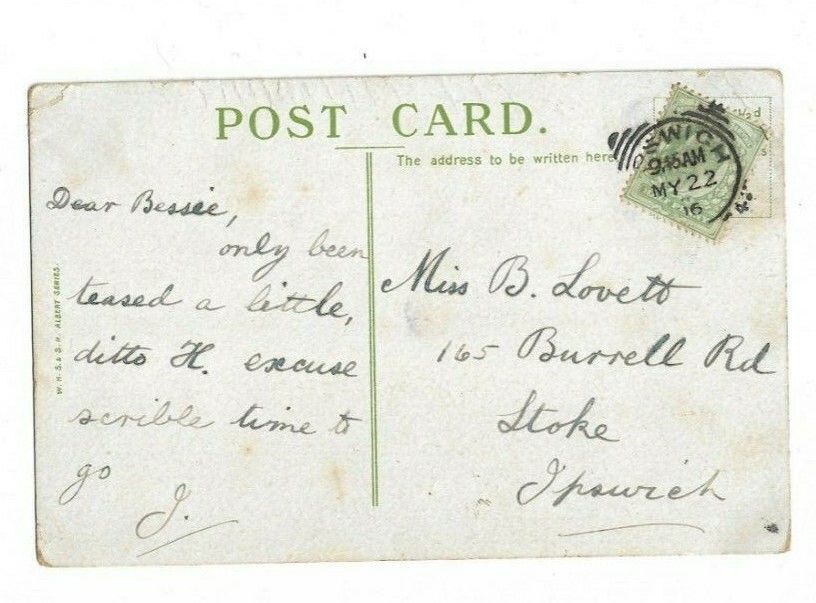 POST CARD.
The address to be written here
WICH
9.45AM
MY 22
16
Dear Bessie,
only been
teased a little,
ditto H. excuse
scrible time to
go
J.
W. H. S. & S. H. ALBERT SERIES.
Miss B. Lovett
165 Burrell Rd
Stoke
Ipswich